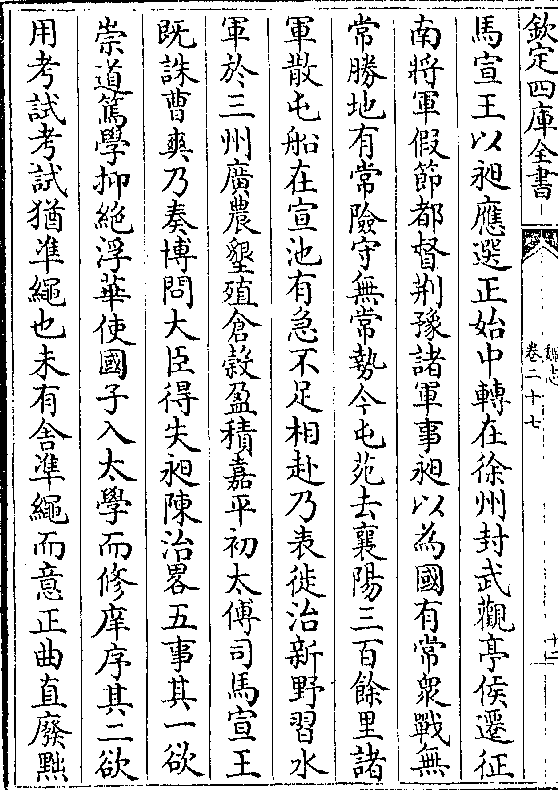 欽定四庫全書
魏志
卷二十七
十二
馬宣王以昶應選正始中轉在徐州封武觀亭侯遷征
南將軍假節都督荆豫諸軍事昶以為國有常衆戰無
常勝地有常險守無常勢今屯苑去襄陽三百餘里諸
軍散屯船在宣池有急不足相赴乃表徙治新野習水
軍於三州廣農墾殖倉穀盈積嘉平初太傅司馬宣王
既誅曹爽乃奏博問大臣得失昶陳治畧五事其一欲
崇道篤學抑絶浮華使國子入太學而修庠序其二欲
用考試考試猶準繩也未有舍準繩而意正曲直廢黜